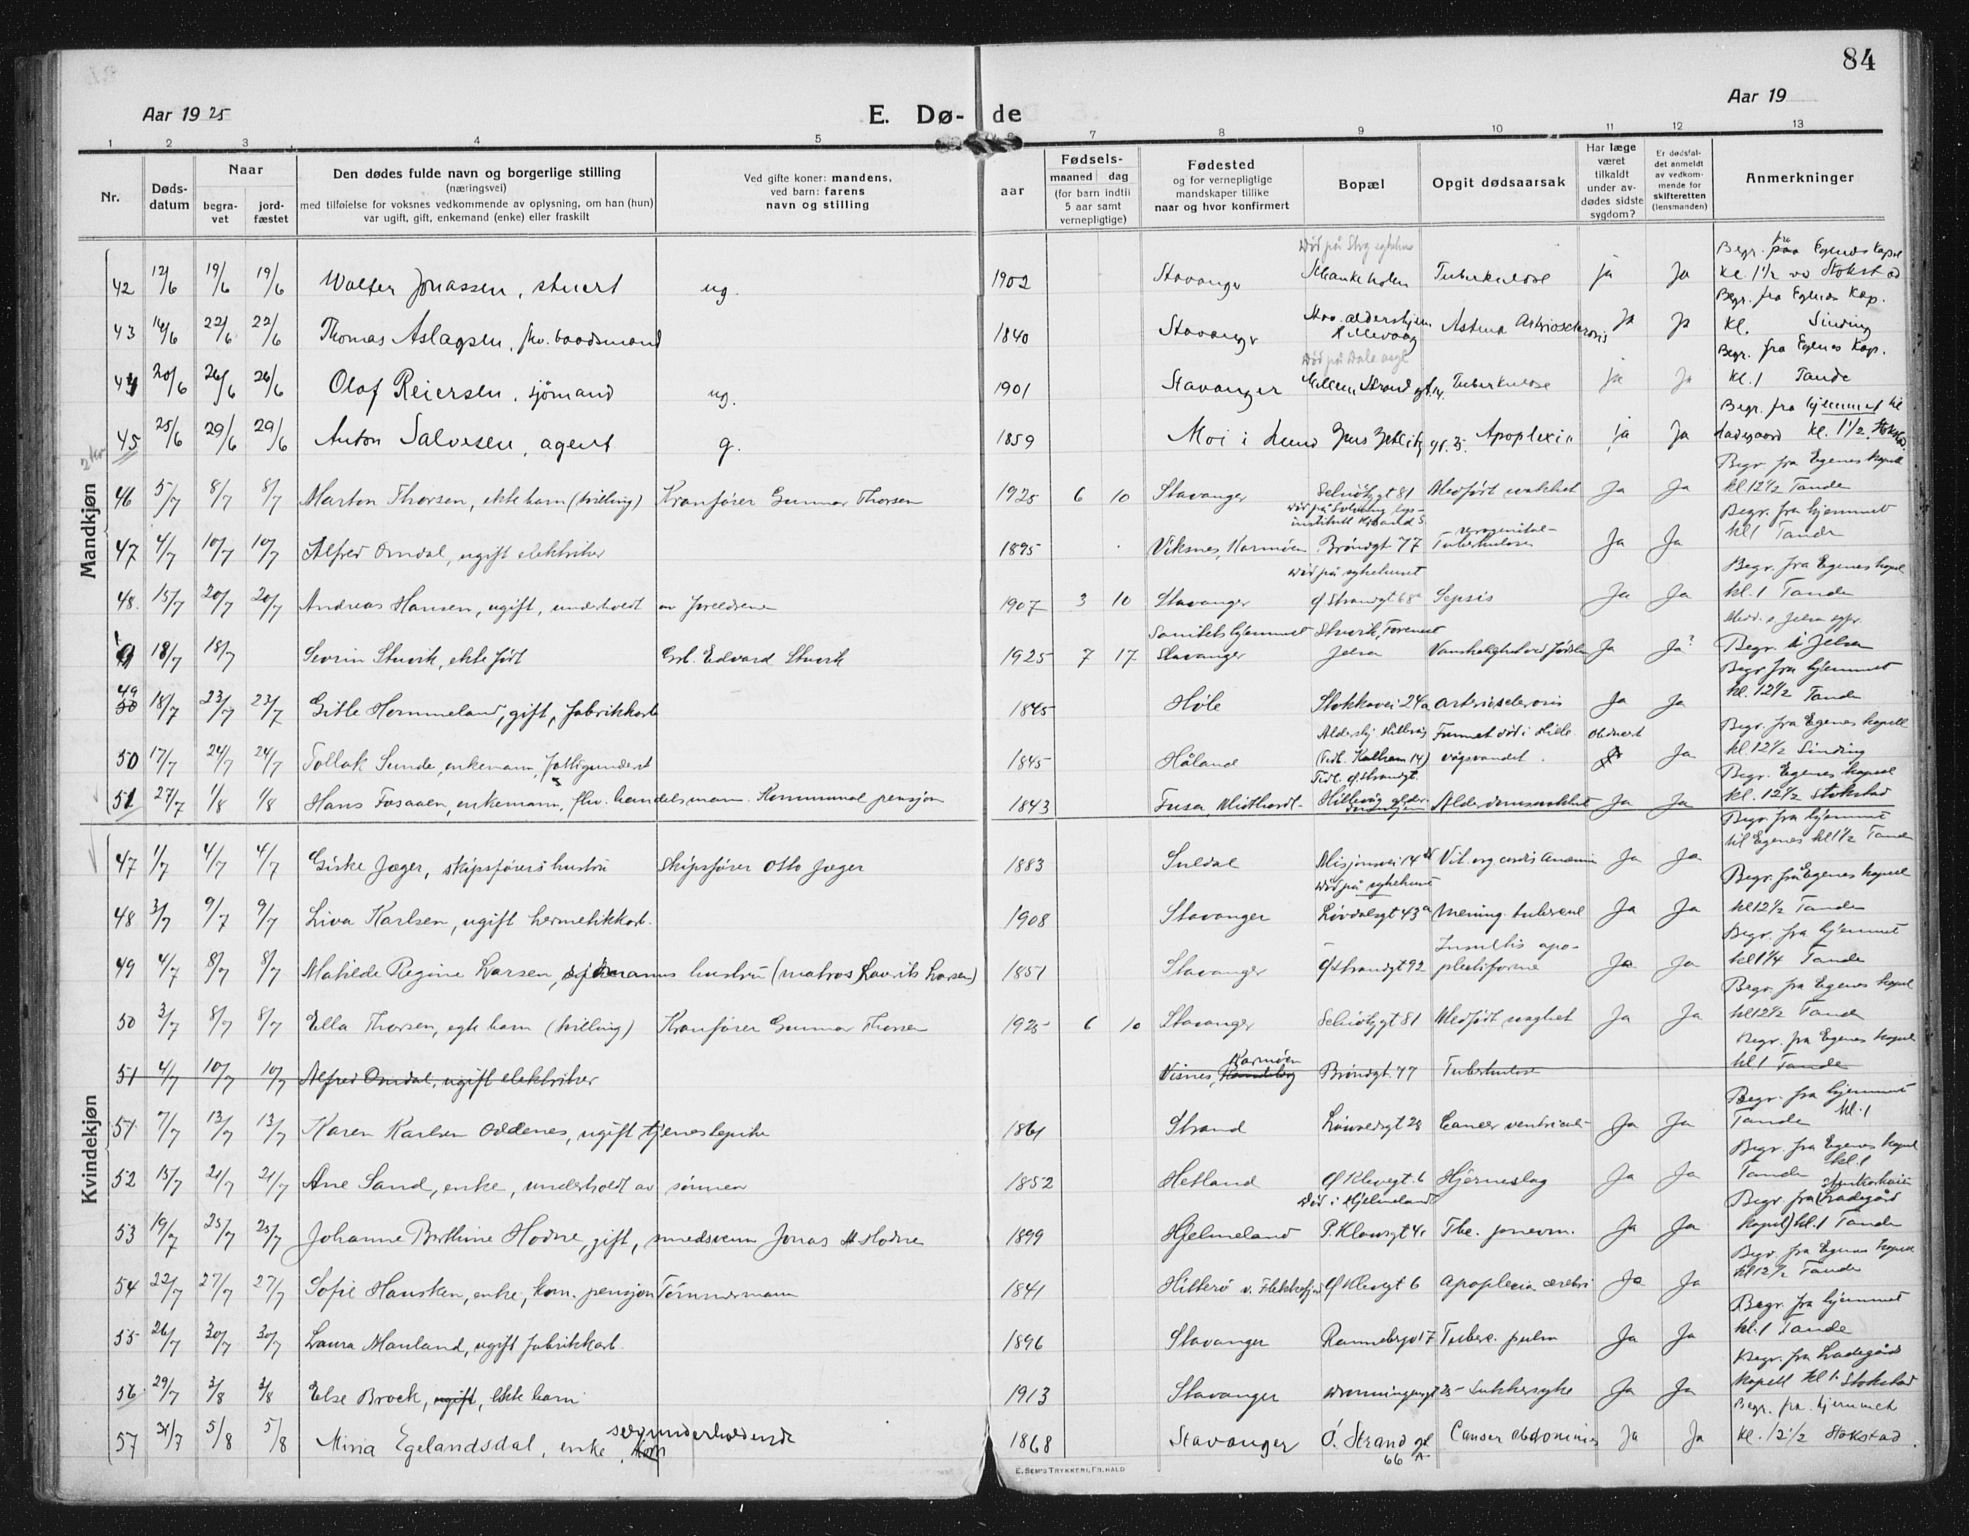 84
Aar 1925
E. Dø-de
Aar 19
1 2 3 4 5 6 7 8 9 10 11 12 13
Nr.
Døds-datum
Naar
begra-vet
jord-fæstet
Den dødes fulde navn og borgerlige stilling
(næringsvei)
med tilføielse for voksnes vedkommende av oplysning, om han (hun)
var ugift, gift, enkemand (enke) eller fraskilt
Ved gifte koner: mandens,
ved barn: farens
navn og stilling
aar
Fødsels-
maaned dag
(for barn indtil
5 aar samt
vernepligtige)
Fødested
og for vernepligtige
mandskaper tillike
naar og hvor konfirmert
Bopæl
Opgit dødsaarsak
Har læge
været
tilkaldt
under av-
dødes sidste
sygdom?
Er dødsfal-
det anmeldt
av vedkom-
mende for
skifteretten
(lensmanden)
Anmerkninger
Mandkjøn
42 12/6 19/6 19/6 Walter Jonassen, stuert ug. 1902 Stavanger Tuberkulose ja Ja Begr. fra Egenes Kapel kl. 1½ Stokstad
43 22/6 22/6 Thomas Aslagsen, fhv. baadsmand 1840 Stavanger Astma Ja Ja Begr. fra Egenes Kap. kl. Sinding
44 20/6 26/6 26/6 Olaf Reiersen, sjømand ug. 1901 Stavanger Tuberkulose ja Ja Begr. fra Egenes Kap. kl. 1 Tande
45 25/6 29/6 29/6 Anton Salvesen, agent g. 1859 Moi i Lund Apoplexia ja Ja Begr. fra hjemmet kl. 1½ Stokstad
46 5/7 8/7 8/7 Marton Thorsen, ekte barn (tvilling) Kranfører Gunnar Thorsen 1925 6 10 Stavanger 81 Medfødt svakhet Ja Ja Begr. fra Egenes kapell kl 12½ Tande
47 4/7 10/7 10/7 Alfred Omdal, ugift elektriker 1895 Viksnes, Karmøen Brøndgt 77 Tuberkulose Ja Ja Begr. fra hjemmet kl 1 Tande
48. 15/7 20/7 20/7 Andreas Hansen, ugift, underholdt av foreldrene 1907 3 10 Stavanger Død på sykehuset Ø Strandgt 68a Sepsis Ja Ja Begr. fra Egenes kapel kl. 1 Tande
18/7 18/7 Sevrin Stuvik, ekte født Edvard Stuvik 1925 7 17 Sanitetshjemmet Stavanger Stuvik, Jelsa Vanskelighet ved fødslen Ja Ja? Begr. i Jelsa
49 18/7 23/7 23/7 Gitle Hommeland, gift, fabrikkarb 1845 Høle Stokkavei 24a Arteriosclerosis Ja Ja Begr. fra hjemmet kl. 12½ Tande
50 17/7 24/7 24/7 Tollak Sunde, enkemann, fattigunderst 1845 Håland Funnet død i Hillevågsvandet Ja Begr. fra Egenes kapell kl. 12½ Sinding
51 27/7 1/8 1/8 Hans Fosaaen, enkemann, fhv. handelsmann. Kommunal pensjon 1843 Fusa, Alderdomssvakhet Ja Ja Begr. Egenes kapel kl. 12½ Stokstad
Kvindekjøn
47 1/7 4/7 4/7 Giske Jæger, skipsførers hustru Skipsfører Otto Jæger 1883 Suldal Misjonsvei 14 Vit. org cordis Anæmi Ja Ja Begr. fra hjemmet til Egenes kl 1½ Tande
48 3/7 9/7 9/7 Liva Karlsen, ugift hermetikkarb. 1908 Stavanger Død på sykehuset Løvdalsgt 43a Mening. tubercul Ja Ja Begr. fra Egenes kapel kl 12½ Tande
49 4/7 8/7 8/7 Matilde Regine Larsen, sjømanns hustru (matros Lavrits Larsen) 1851 Stavanger Ø Strandgt 92 Insultis apoplectiforme Ja Ja Begr. fra hjemmet kl 1¼ Tande
50 3/7 8/7 8/7 Ella Thorsen, egte barn (tvilling) Kranfører Gunnar Thorsen 1925 6 10 Stavanger 81 Medfødt svaghet Ja Ja Begr. fra Egenes kapel kl 12½ Tande
51 4/7 10/7 10/7 Alfred Omdal, ugift elektriker Visnes, Karmøen Brøndgt. 77 Tuberkulose Begr. fra Egenes kapel kl 1 Tande
51 7/7 13/7 13/7 Karen Karlsen Oddenes, ugift tjenestepike 1861 Strand 28 Cancer ventricul- Ja Ja Begr. fra hjemmet kl. 1 Tande
52 15/7 21/7 21/7 Ane Sand, enke, underholdt av sønnen 1852 Hetland Ø Klevegt. 6 Hjerneslag Ja Ja Begr. fra Egenes kapel kl. 1 Tande
53 19/7 25/7 25/7 Johanne Bertine Hodne, gift, smedsvenn Jonas Hodne 1899 Hjelmeland Død i Hjelmeland P. Klowsgt 4 Tbc. pneum. Ja Ja Begr fra Ladegård kapel) kl. 1 Tande
54 22/7 27/7 27/7 Sofie Hansken, enke, kom. pensjon Tømmermann 1841 Hitterø v. Flekkefjord Ø Klevegt 6 Apoplexia cerebri Ja Ja Begr. fra Egenes kapel kl 12½ Tande
55 26/7 30/7 30/7 Laura Mauland, ugift fabrikkarb. 1896 Stavanger 17 Tuberc. pulm Ja Ja Begr fra hjemmet kl. 1 Tande
56 29/7 3/8 3/8 Else Brock, ugift, ekte barn 1913 Stavanger Dronningensgt 25 Sukkersyke Ja Ja Begr. fra Ladegårds kapell kl 1. Stokstad
57 31/7 5/8 5/8 Mina Egelandsdal, enke, selvunderholdende 1868 Stavanger Ø. Strandgt 66 A Cancer abdominis Ja Ja Begr. fra hjemmet kl. 12½ Stokstad.
E. SEM'S TRYKKERI, FR.HALD